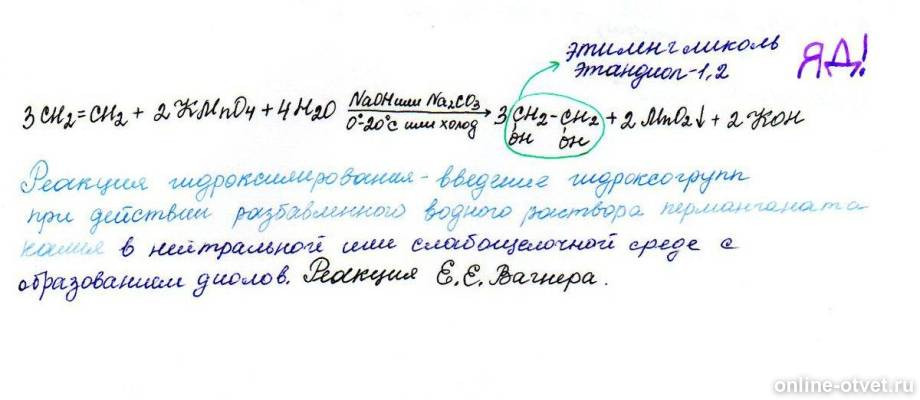 этиленгликоль
этандиол-1,2
ЯД!
NaOH или Na2CO3
3CH2=CH2 + 2KMnO4 + 4H2O → 3CH2-CH2 + 2MnO2↓ + 2KOH
0°-20°C или холод
OH OH
Реакция гидроксилирования - введение гидроксогрупп
при действии разбавленного водного раствора перманганата
калия в нейтральной или слабощелочной среде с
образованием диолов. Реакция Е.Е. Вагнера.
online-otvet.ru